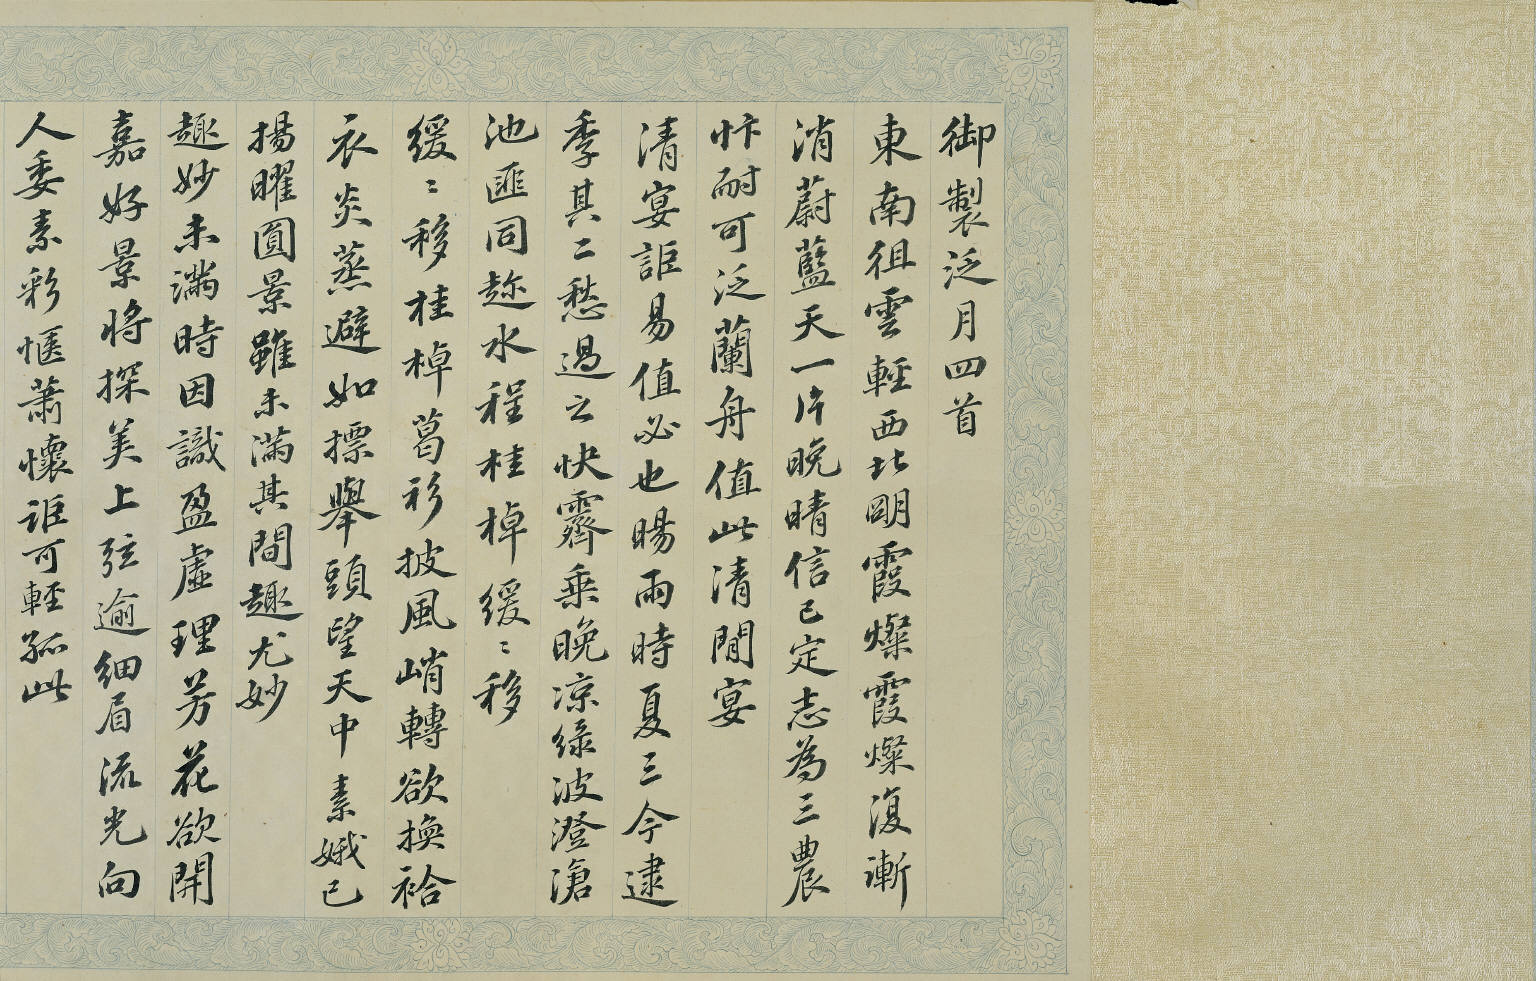 御製泛月四首
東南徂雲輕西北剛霞燦霞燦復漸
消蔚藍天一片晩晴信已定志為三農
忭耐可泛蘭舟值此清閒宴
清宴詎易值必也暘雨時夏三今逮
季其二愁過之快霽乗晩凉綠波澄滄
池匪同趂水程桂棹緩〻移
緩〻移桂棹葛衫披風峭轉欲換袷
衣炎蒸避如摽舉頭望天中素娥已
揚曜圓景雖未滿其間趣尤妙
趣妙未滿時因識盈虛理芳花欲開
嘉好景將探美上弦逾細眉流光向
人委素彩愜蕭懷詎可輕孤此